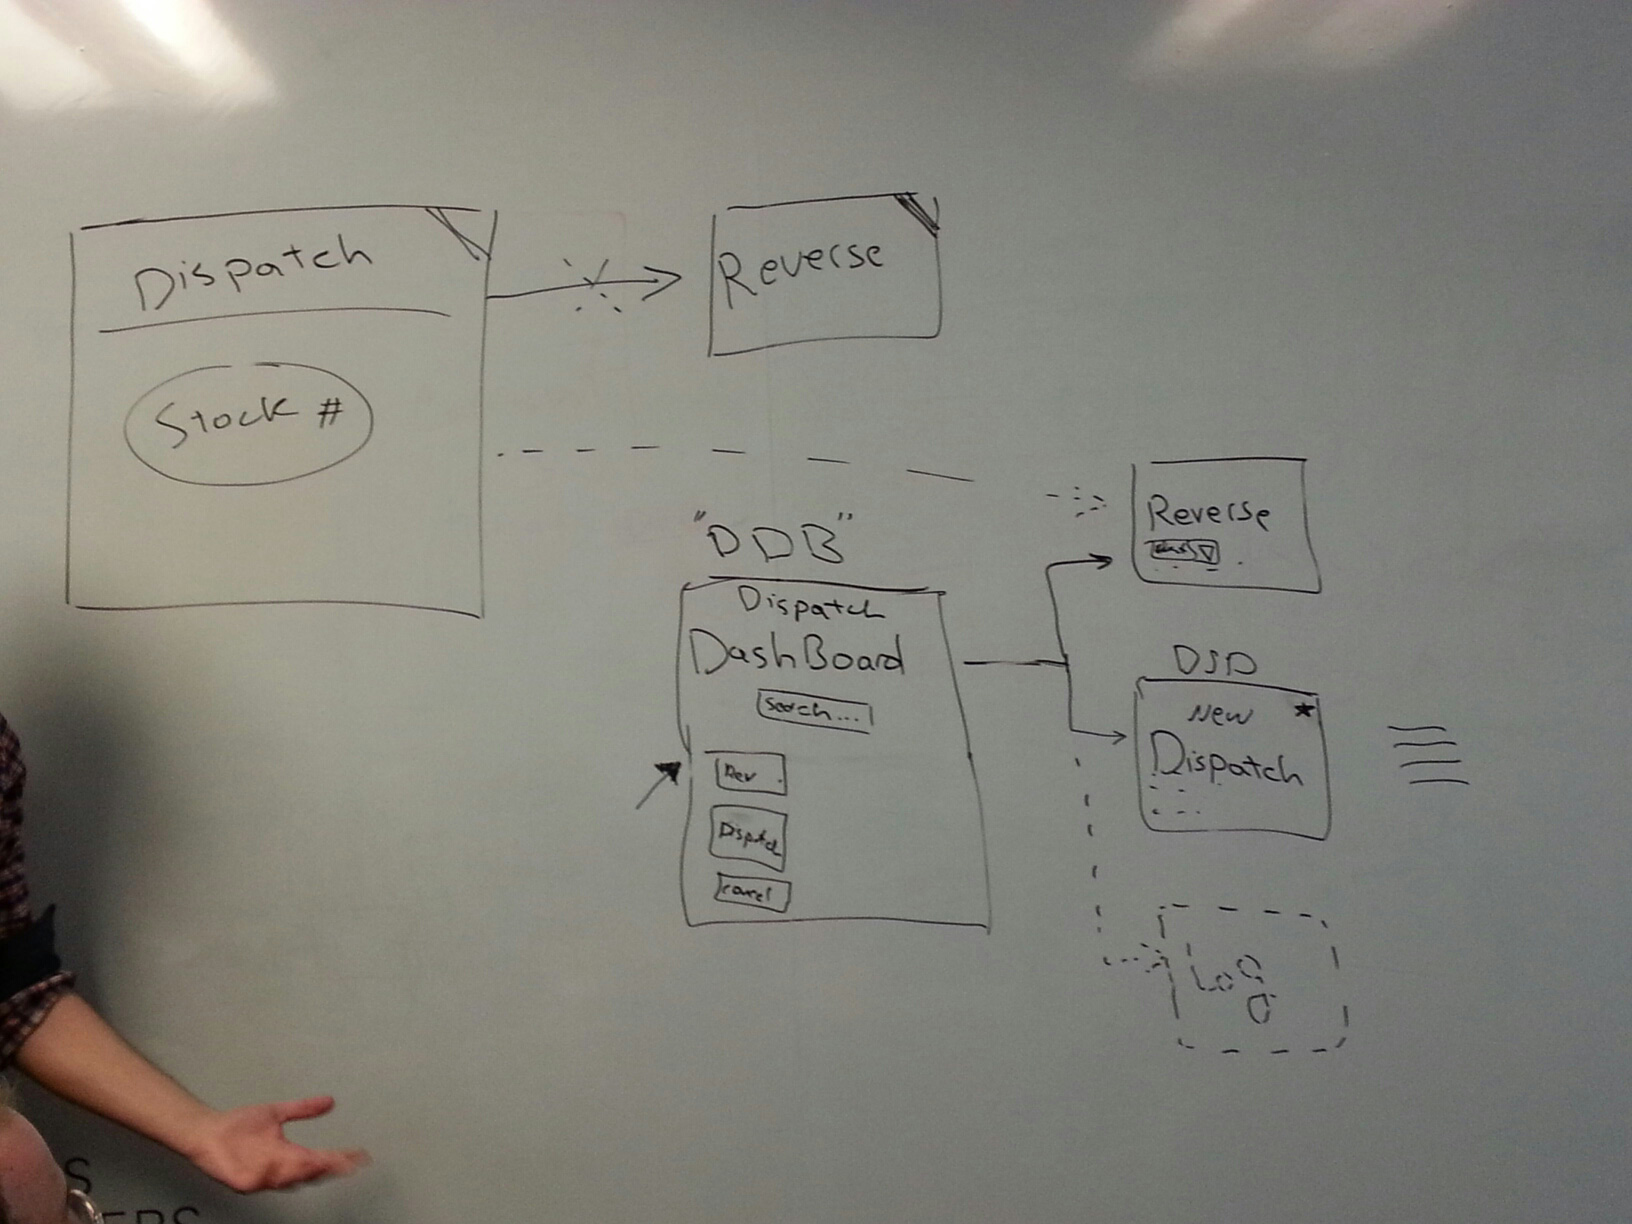 Dispatch
Stock #
Reverse
"DDB"
Dispatch
DashBoard
Search...
Rev
Dispatch
cancel
Reverse
DSD
New
Dispatch
Log
S
ERS